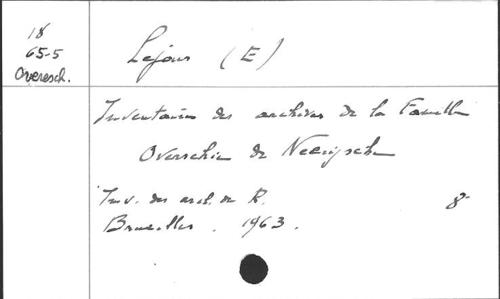 18
65-5
Overesch.
Lejour (E)
Inventaire des archives de la Famille
Overschie de Neerijsche
Inv. des arch. du R.
8°
Bruxelles . 1963 .